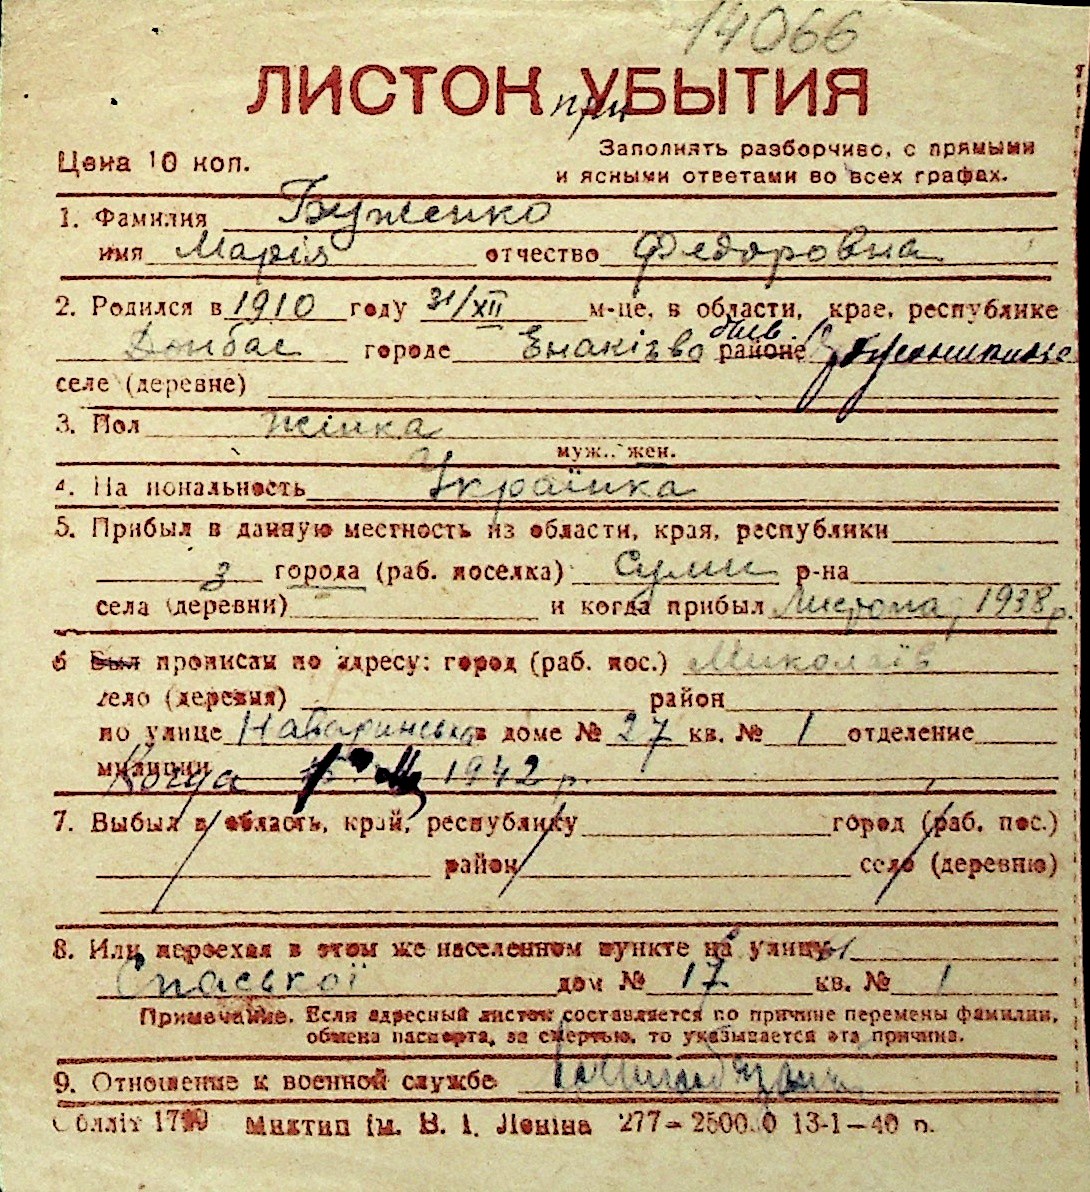 14066
ЛИСТОК при УБЫТИЯ
Цена 10 коп.
Заполнять разборчиво, с прямыми
и ясными ответами во всех графах.
1. Фамилия Буженко
имя Марія отчество Федоровна
2. Родился в 1910 году 31/XII м-це, в области, крае, республике
Донбас городе Енакієво бив. районе
селе (деревне)
3. Пол жінка
муж.. жен.
4. Национальность Українка
5. Прибыл в данную местность из области, края, республики
з города (раб. поселка) Суми р-на
села (деревни) и когда прибыл Листопад 1938 р.
6 Был прописан по адресу: город (раб. пос.) Миколаїв
село (деревня) район
по улице Наваринська в доме № 27 кв. № 1 отделение
милиции Когда 1942 р.
7. Выбыл в область, край, республику город (раб. пос.)
район село (деревню)
8. Или переехал в этом же населенном пункте на улицу
Спаської дом № 17 кв. № 1
Примечание. Если адресный листок составляется по причине перемены фамилии,
обмена паспорта, за смертью, то указывается эта причина.
9. Отношение к военной службе
Облліт 1790 Миктип ім. В. І. Леніна 277—250000 13-1—40 р.